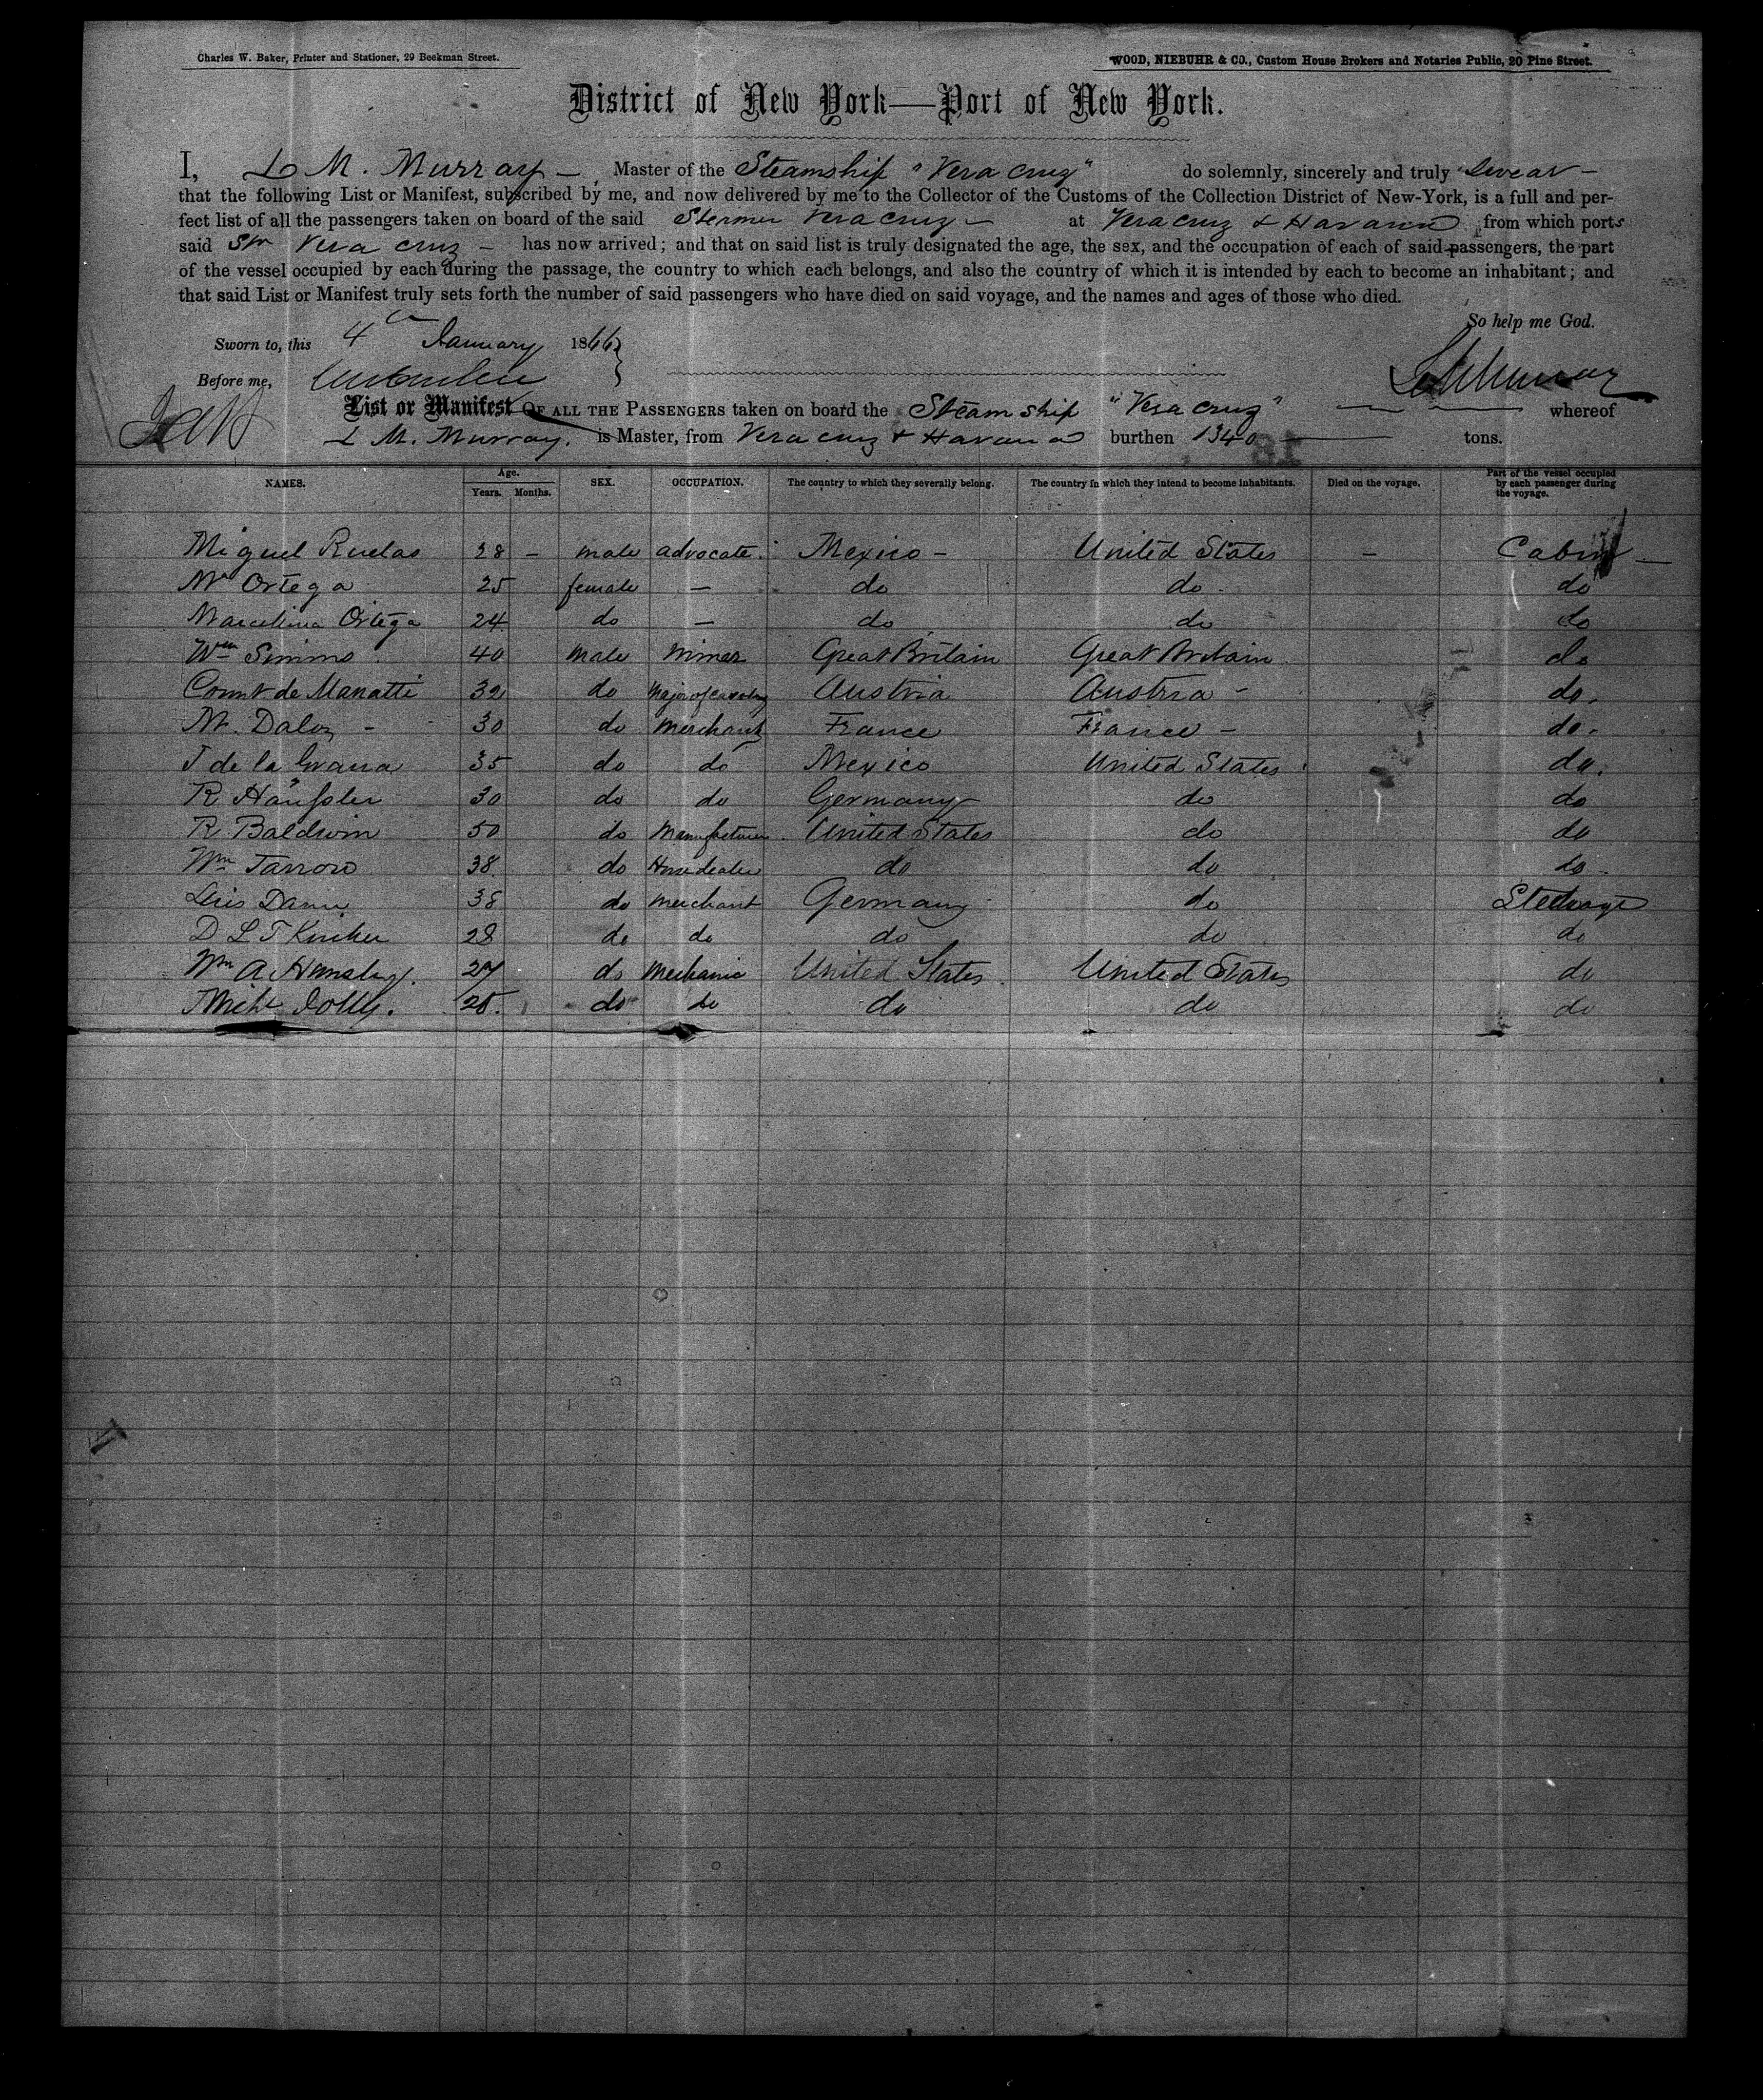 Charles W. Baker, Printer and Stationer, 29 Beekman Street.
WOOD, NIEBUHR & CO., Custom House Brokers and Notaries Public, 20 Pine Street.
District of New York—Port of New York.
I, L M. Murray — Master of the Steamship "Vera Cruz" do solemnly, sincerely and truly swear —
that the following List or Manifest, subscribed by me, and now delivered by me to the Collector of the Customs of the Collection District of New-York, is a full and per-
fect list of all the passengers taken on board of the said Steamer Vera Cruz — at Vera Cruz & Havana from which ports
said Str Vera Cruz — has now arrived; and that on said list is truly designated the age, the sex, and the occupation of each of said passengers, the part
of the vessel occupied by each during the passage, the country to which each belongs, and also the country of which it is intended by each to become an inhabitant; and
that said List or Manifest truly sets forth the number of said passengers who have died on said voyage, and the names and ages of those who died.
So help me God.
Sworn to, this 4th January 1866
Before me,
L M Murray
List or Manifest OF ALL THE PASSENGERS taken on board the Steam ship "Vera Cruz" whereof
L M. Murray. is Master, from Vera Cruz & Havana burthen 1340 tons.
NAMES. Age. Years. Months. SEX. OCCUPATION. The country to which they severally belong. The country in which they intend to become inhabitants. Died on the voyage. Part of the vessel occupied by each passenger during the voyage.
Miguel Ruelas 28 — male advocate Mexico — United States — Cabin
Ortega 25 female — do do do
Marcelina Ortega 24 do — do do do
Wm Simms 40 male Miner Great Britain Great Britain do
Count de Manatti 32 do Major of cavalry Austria Austria — do.
M. Daloz — 30 do merchant France France — do.
J de la Grana 35 do do Mexico United States do.
R Häussler 30 do do Germany do do
R Baldwin 50 do Manufacturer United States do do
Wm Tarrow 38. do Horse dealer do do do
38 do merchant Germany do Steerage
D L T 28 do do do do do
Wm A. 27 do Mechanic United States United States do
25. do do do do do